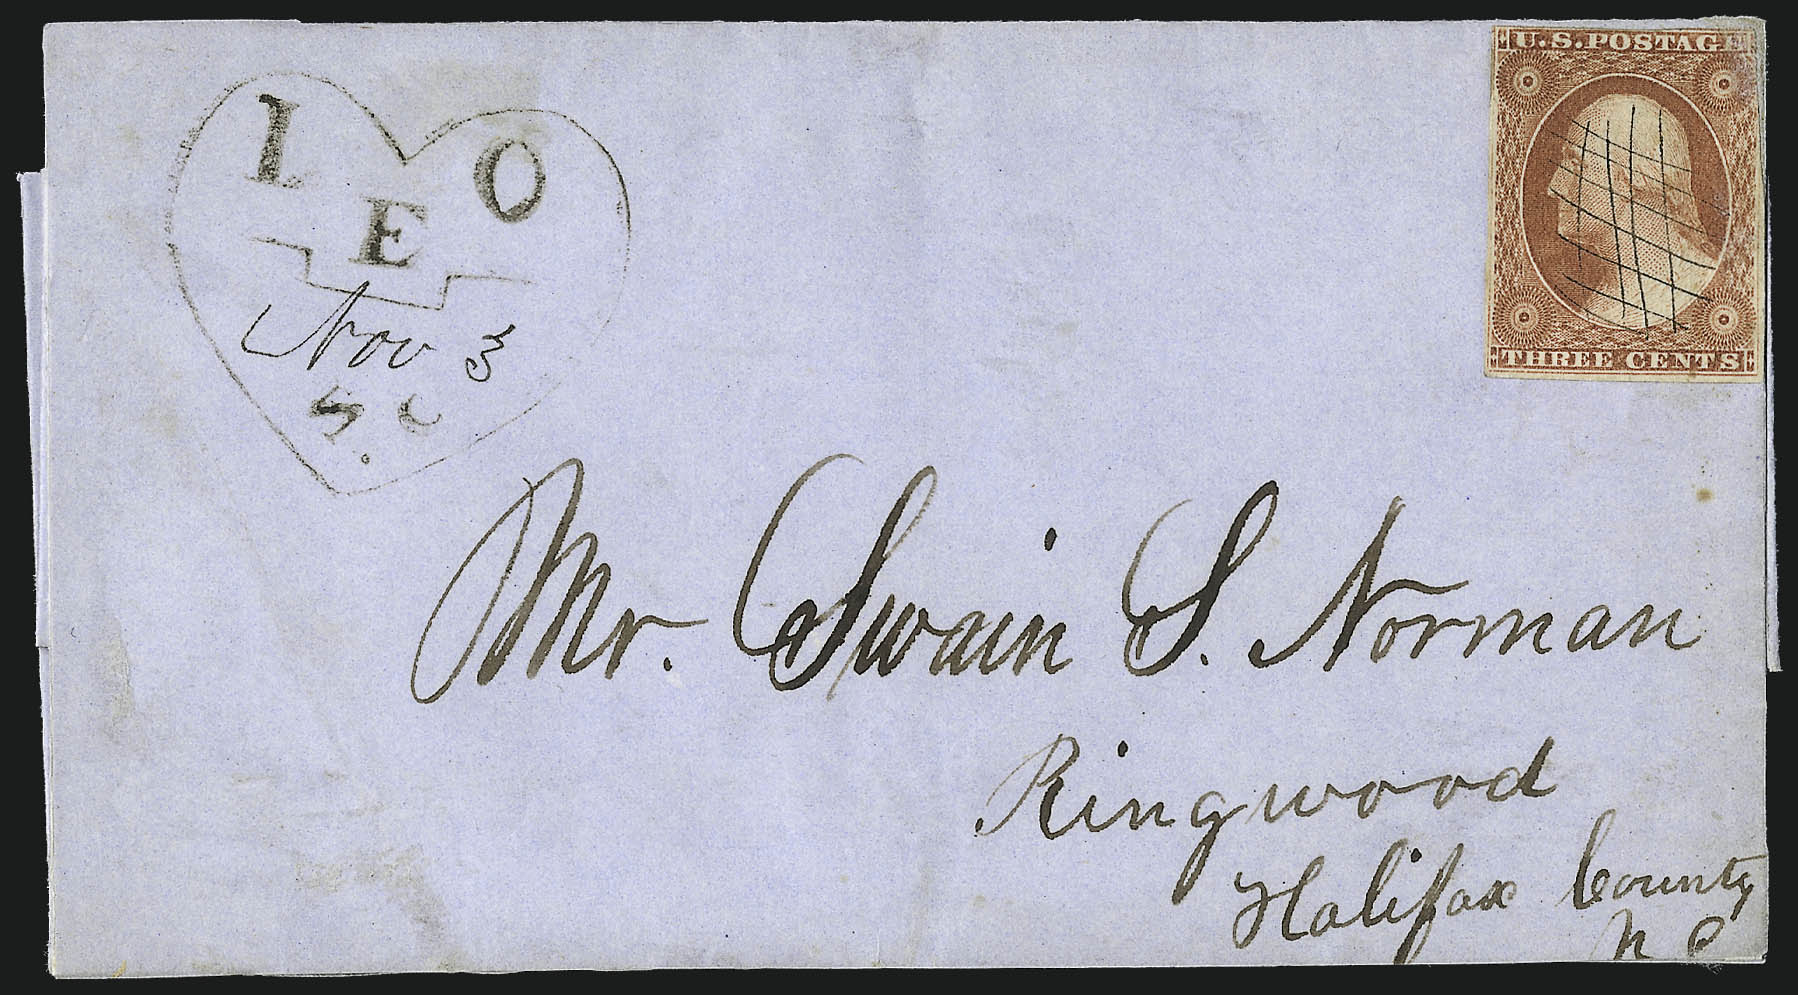 LEO
Nov 3
S.C
U.S. POSTAGE
THREE CENTS
Mr. Swain S. Norman
Ringwood
Halifax County
N C